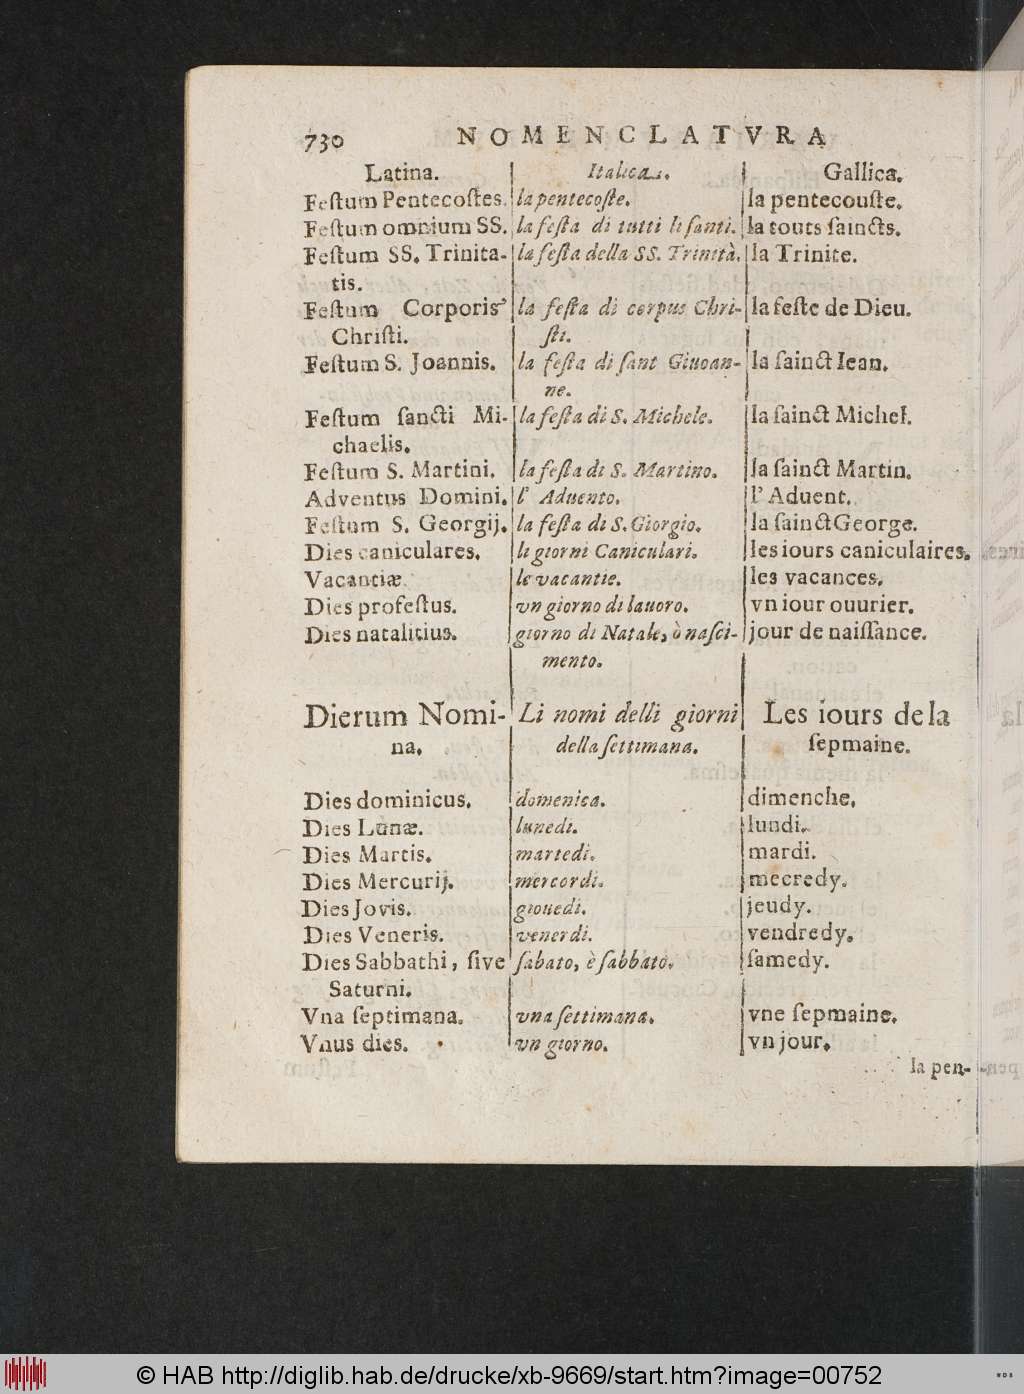 730 NOMENCLATVRA
Latina. Italica. Gallica.
Feſtum Pentecoſtes. la pentecoſte. la pentecouſte.
Feſtum omnium SS. la feſta di tutti li ſanti. la touts ſaincts.
Feſtum SS. Trinita- la feſta della SS. Trinità. la Trinite.
tis.
Feſtum Corporis la feſta di corpus Chri- la feſte de Dieu.
Chriſti. ſti.
Feſtum S. Joannis. la feſta di ſant Giuoan- la ſainct Iean.
ne.
Feſtum ſancti Mi- la feſta di S. Michele. la ſainct Michel.
chaelis.
Feſtum S. Martini. la feſta di S. Martino. la ſainct Martin.
Adventus Domini. l' Aduento. l' Aduent.
Feſtum S. Georgij. la feſta di S. Giorgio. la ſainct George.
Dies caniculares. li giorni Caniculari. les iours caniculaires.
Vacantiæ. le vacantie. les vacances.
Dies profeſtus. vn giorno di lauoro. vn iour ouurier.
Dies natalitius. giorno di Natale, ò naſci- jour de naiſſance.
mento.
Dierum Nomi- Li nomi delli giorni Les iours de la
na. della ſettimana. ſepmaine.
Dies dominicus. domenica. dimenche.
Dies Lunæ. lunedi. lundi.
Dies Martis. martedi. mardi.
Dies Mercurij. mercordi. mecredy.
Dies Jovis. giouedi. jeudy.
Dies Veneris. venerdi. vendredy.
Dies Sabbathi, ſive ſabato, è ſabbato. ſamedy.
Saturni.
Vna ſeptimana. vna ſettimana. vne ſepmaine.
Vnus dies. vn giorno. vn jour.
la pen-
© HAB http://diglib.hab.de/drucke/xb-9669/start.htm?image=00752